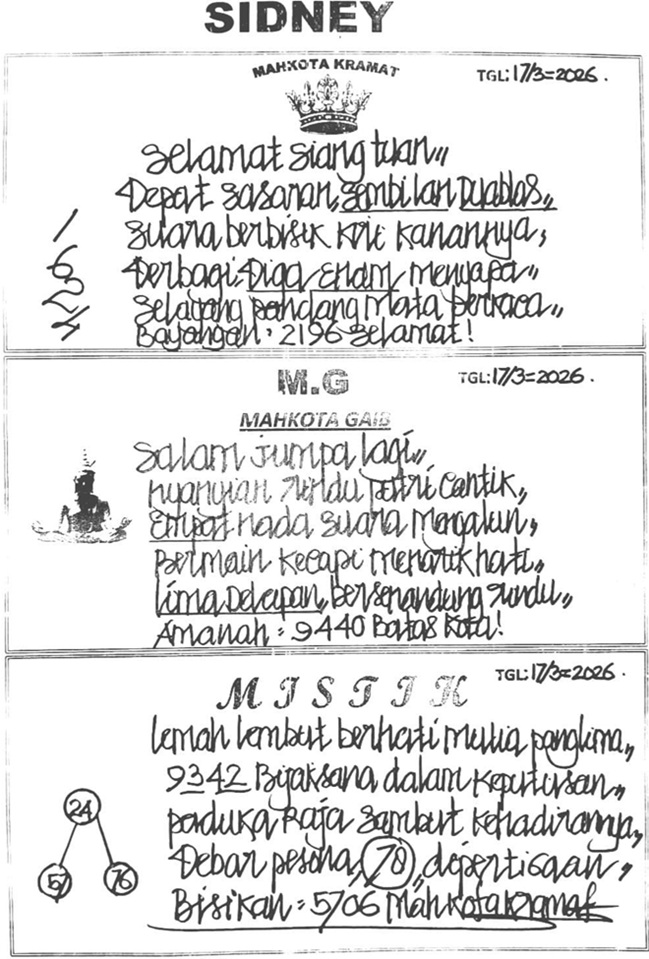 SIDNEY
MAHKOTA KRAMAT
TGL: 17/3=2026.
Selamat siang tuan,,
Depat sasaran, sembilan Duablas,,
suara berbisik kiri kanannya,
Derbagi, Diga enam menyapa,,
selayang pandang mata perkaca,,
Bayangan: 2196 selamat!
M.G
TGL: 17/3=2026.
MAHKOTA GAIB
salam jumpa lagi,,
nyanyian rindu putri cantik,
Empat nada suara mengalun,
Bermain kecapi menarik hati,
lima Delapan, bersenandung rindu,,
Amanah: 9440 Batas kota!
TGL: 17/3=2026.
MISTIK
lemah lembut berhati mulia panglima,,
9342 Bijaksana dalam keputusan,,
paduka Raja sambut kehadirannya,
Debar pesona, 78, depertisaan,,
24
57 76
Bisikan: 5706 Mahkota kramat